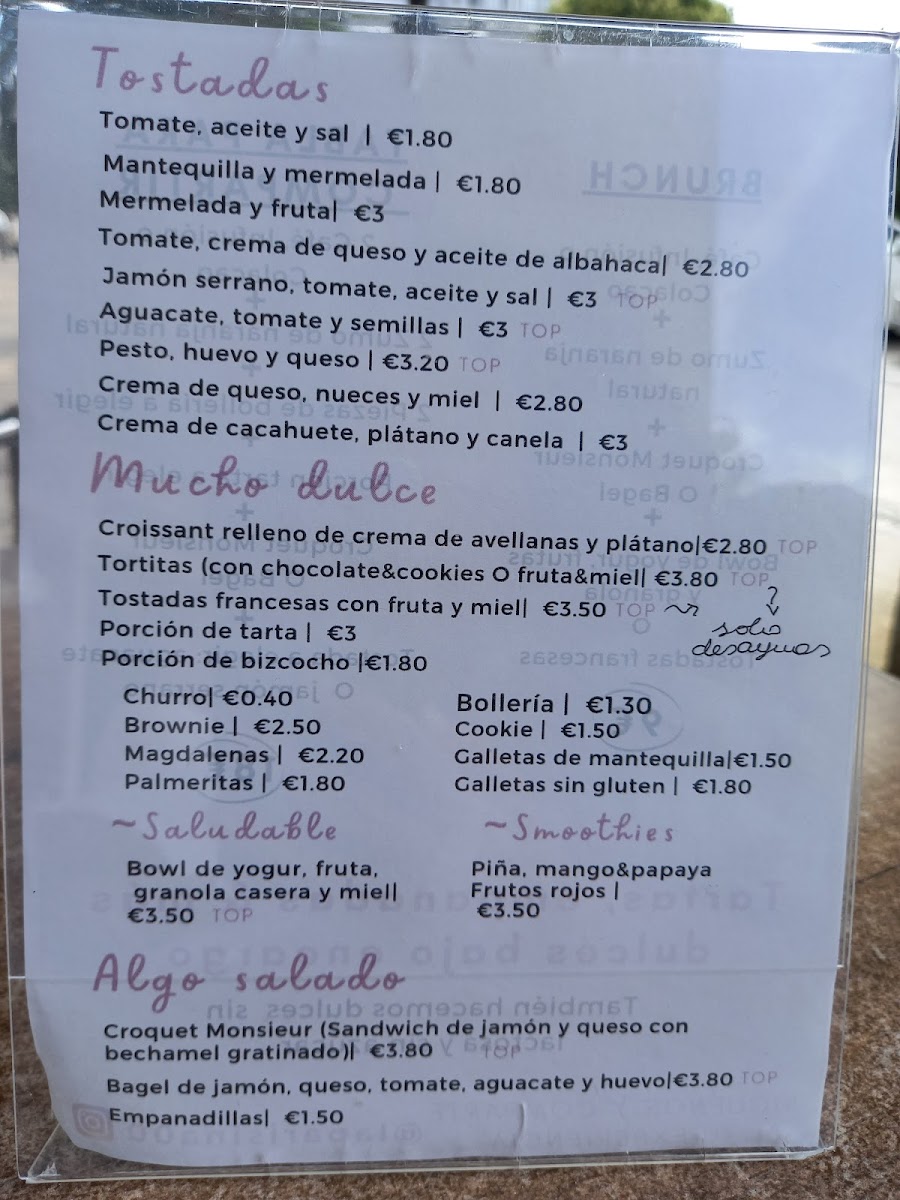 Tostadas
Tomate, aceite y sal | €1.80
Mantequilla y mermelada | €1.80
Mermelada y fruta| €3
Tomate, crema de queso y aceite de albahaca| €2.80
Jamón serrano, tomate, aceite y sal | €3 TOP
Aguacate, tomate y semillas | €3 TOP
Pesto, huevo y queso | €3.20 TOP
Crema de queso, nueces y miel | €2.80
Crema de cacahuete, plátano y canela | €3
Mucho dulce
Croissant relleno de crema de avellanas y plátano|€2.80 TOP
Tortitas (con chocolate&cookies O fruta&miel| €3.80 TOP
Tostadas francesas con fruta y miel| €3.50 TOP
solo
desayunos
Porción de tarta | €3
Porción de bizcocho |€1.80
Churro| €0.40
Brownie | €2.50
Magdalenas | €2.20
Palmeritas | €1.80
Bollería | €1.30
Cookie | €1.50
Galletas de mantequilla|€1.50
Galletas sin gluten | €1.80
~Saludable
Bowl de yogur, fruta,
granola casera y miel|
€3.50 TOP
~Smoothies
Piña, mango&papaya
Frutos rojos |
€3.50
Algo salado
Croquet Monsieur (Sandwich de jamón y queso con
bechamel gratinado)| €3.80 TOP
Bagel de jamón, queso, tomate, aguacate y huevo|€3.80 TOP
Empanadillas| €1.50